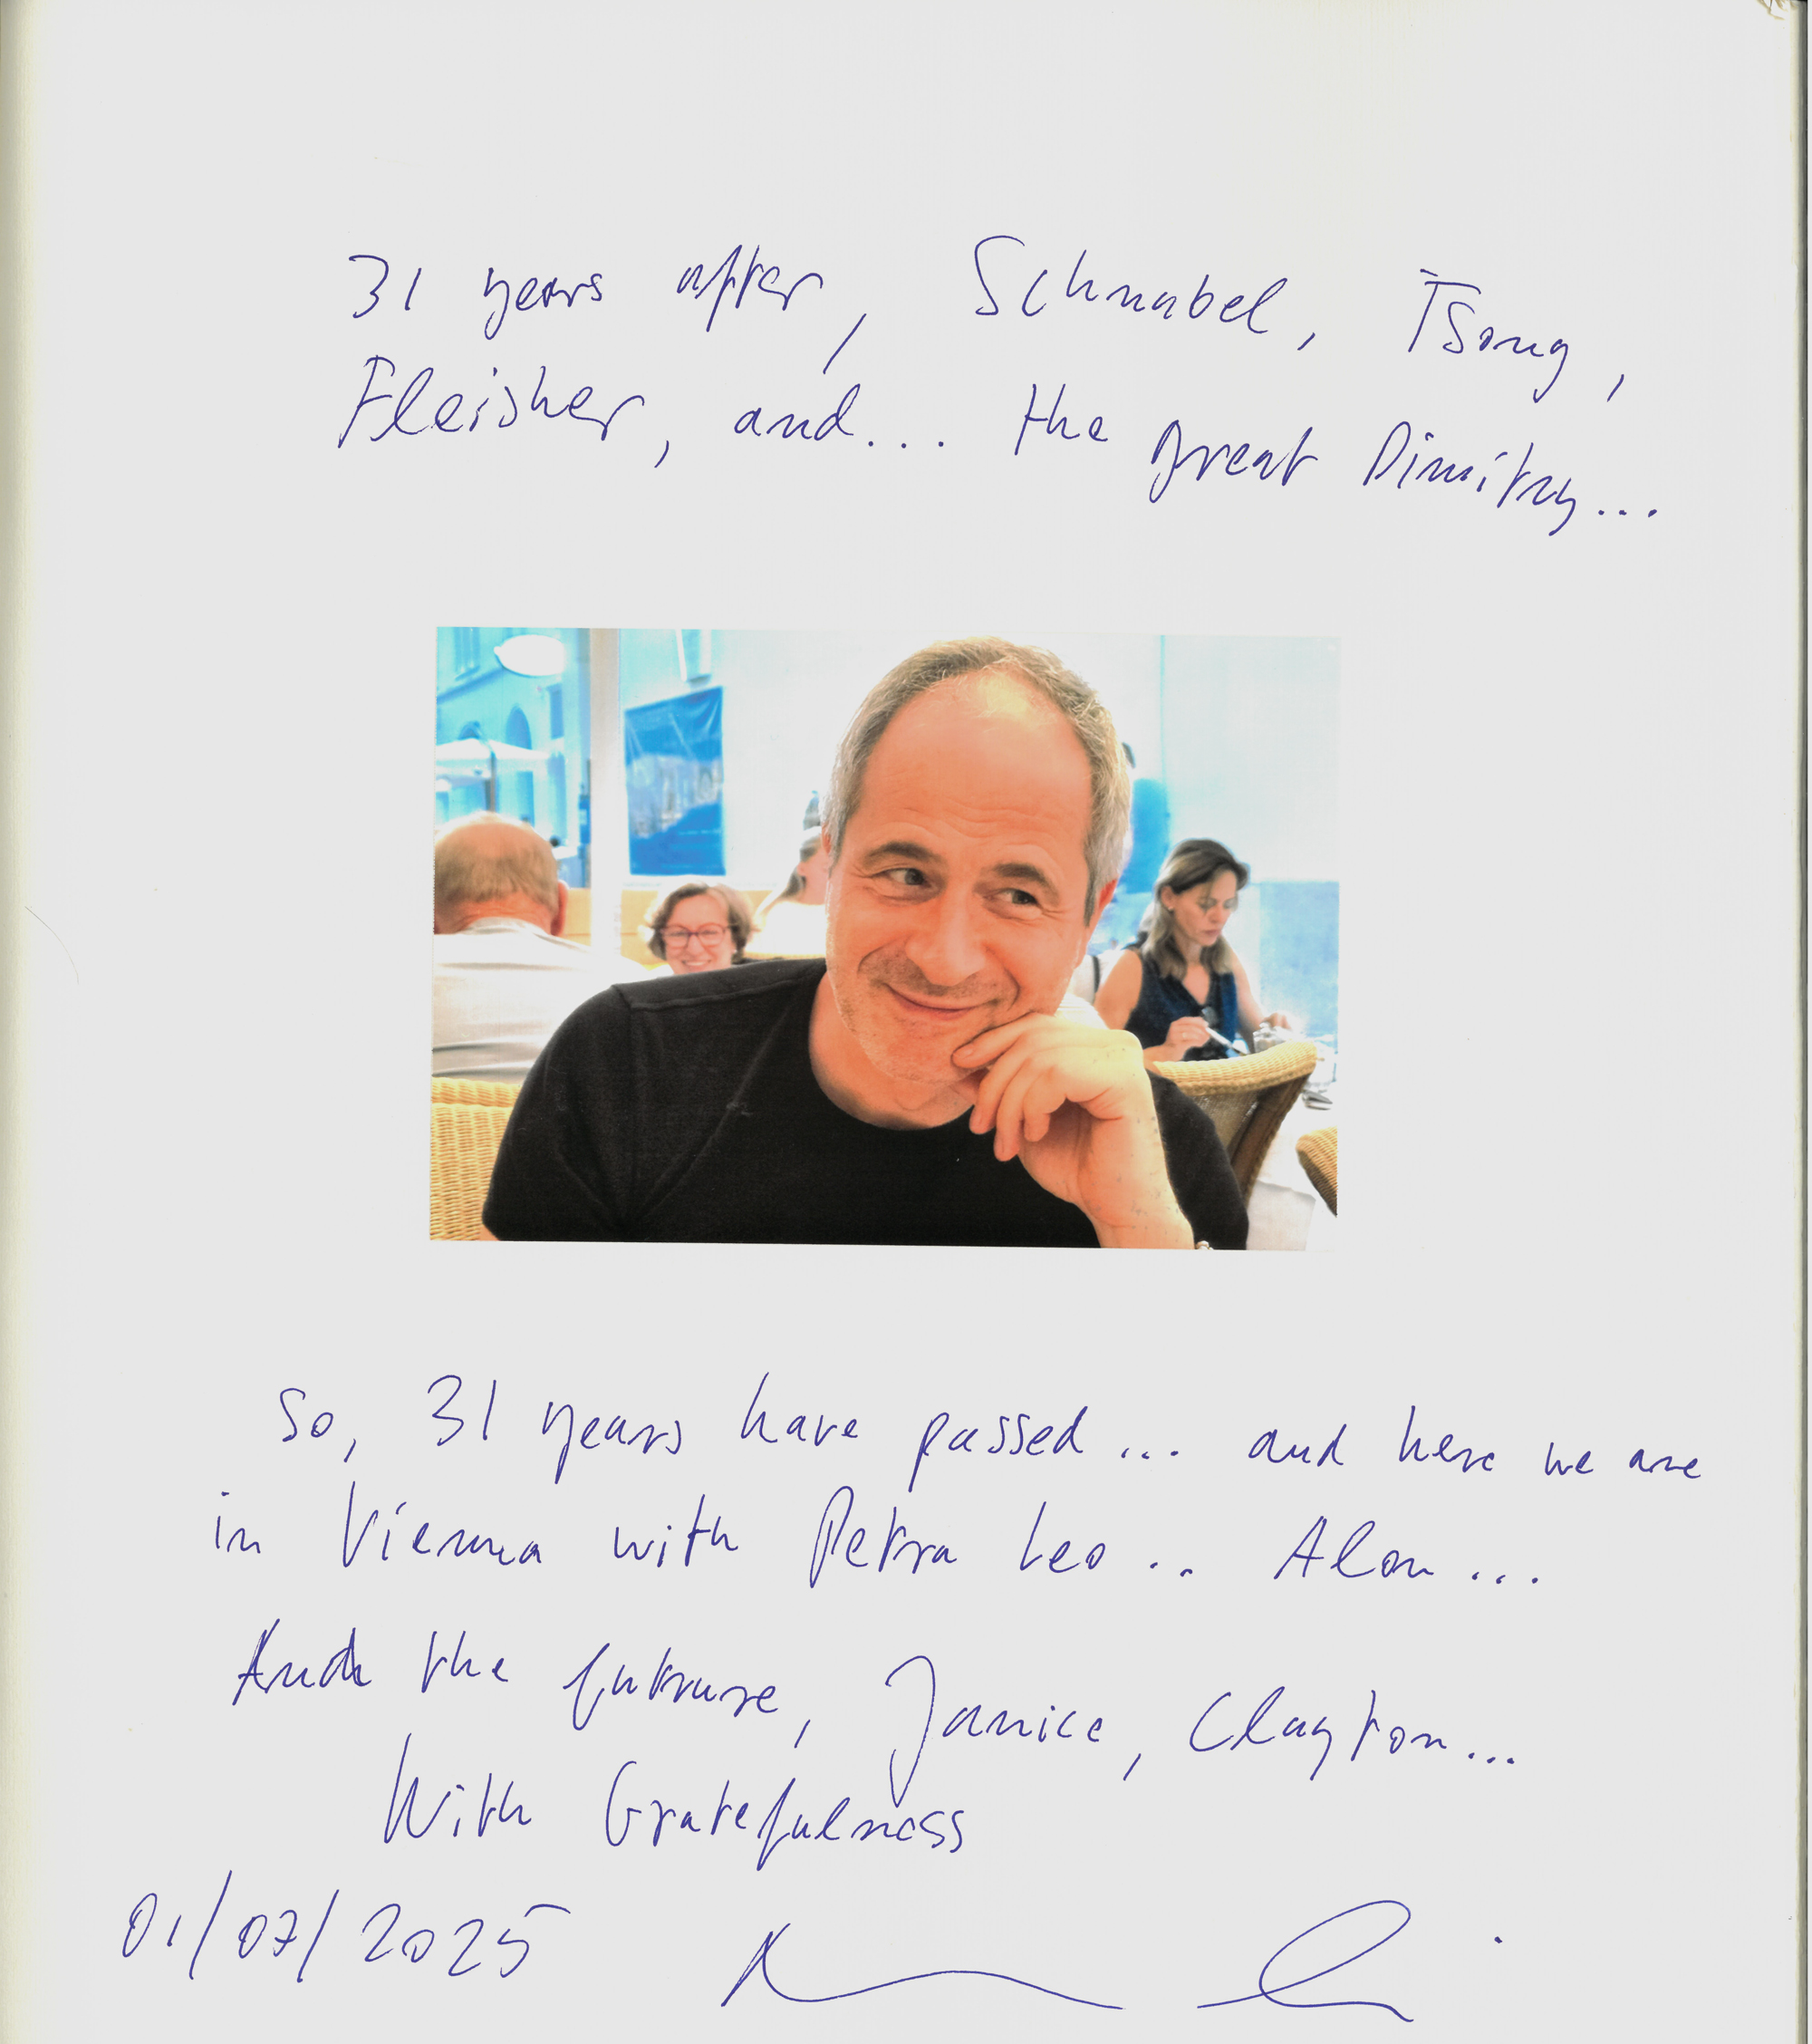 31 years after, Schnabel, Tsong,
Fleisher, and... the great Dimitry...
So, 31 years have passed... and here we are
in Vienna with Petra Leo .. Alon...
And the future, Janice, Clayton...
With Gratefulness
01/07/2025